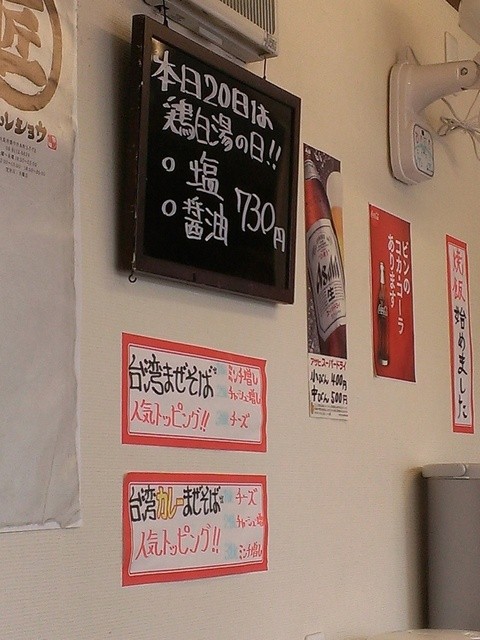 匠
ルショウ
本日20日は
鶏白湯の日!!
○ 塩
○ 醤油
730円
Asahi
生
アサヒスーパードライ
小びん 400円
中びん 500円
ビンの
コカ・コーラ
あります
焼飯 始めました
台湾まぜそば
人気トッピング!!
ミンチ増し
チャーシュー増し
チーズ
台湾カレーまぜそば
人気トッピング!!
チーズ
チャーシュー増し
ミンチ増し